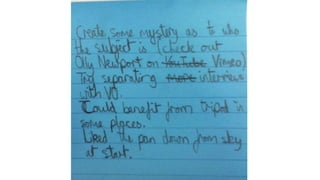 Create some mystery as to who
the subject is (check out
Olly Newport on YouTube Vimeo)
Try separating more interviews
with VO.
Could benefit from tripod in
some places.
Liked the pan down from sky
at start.